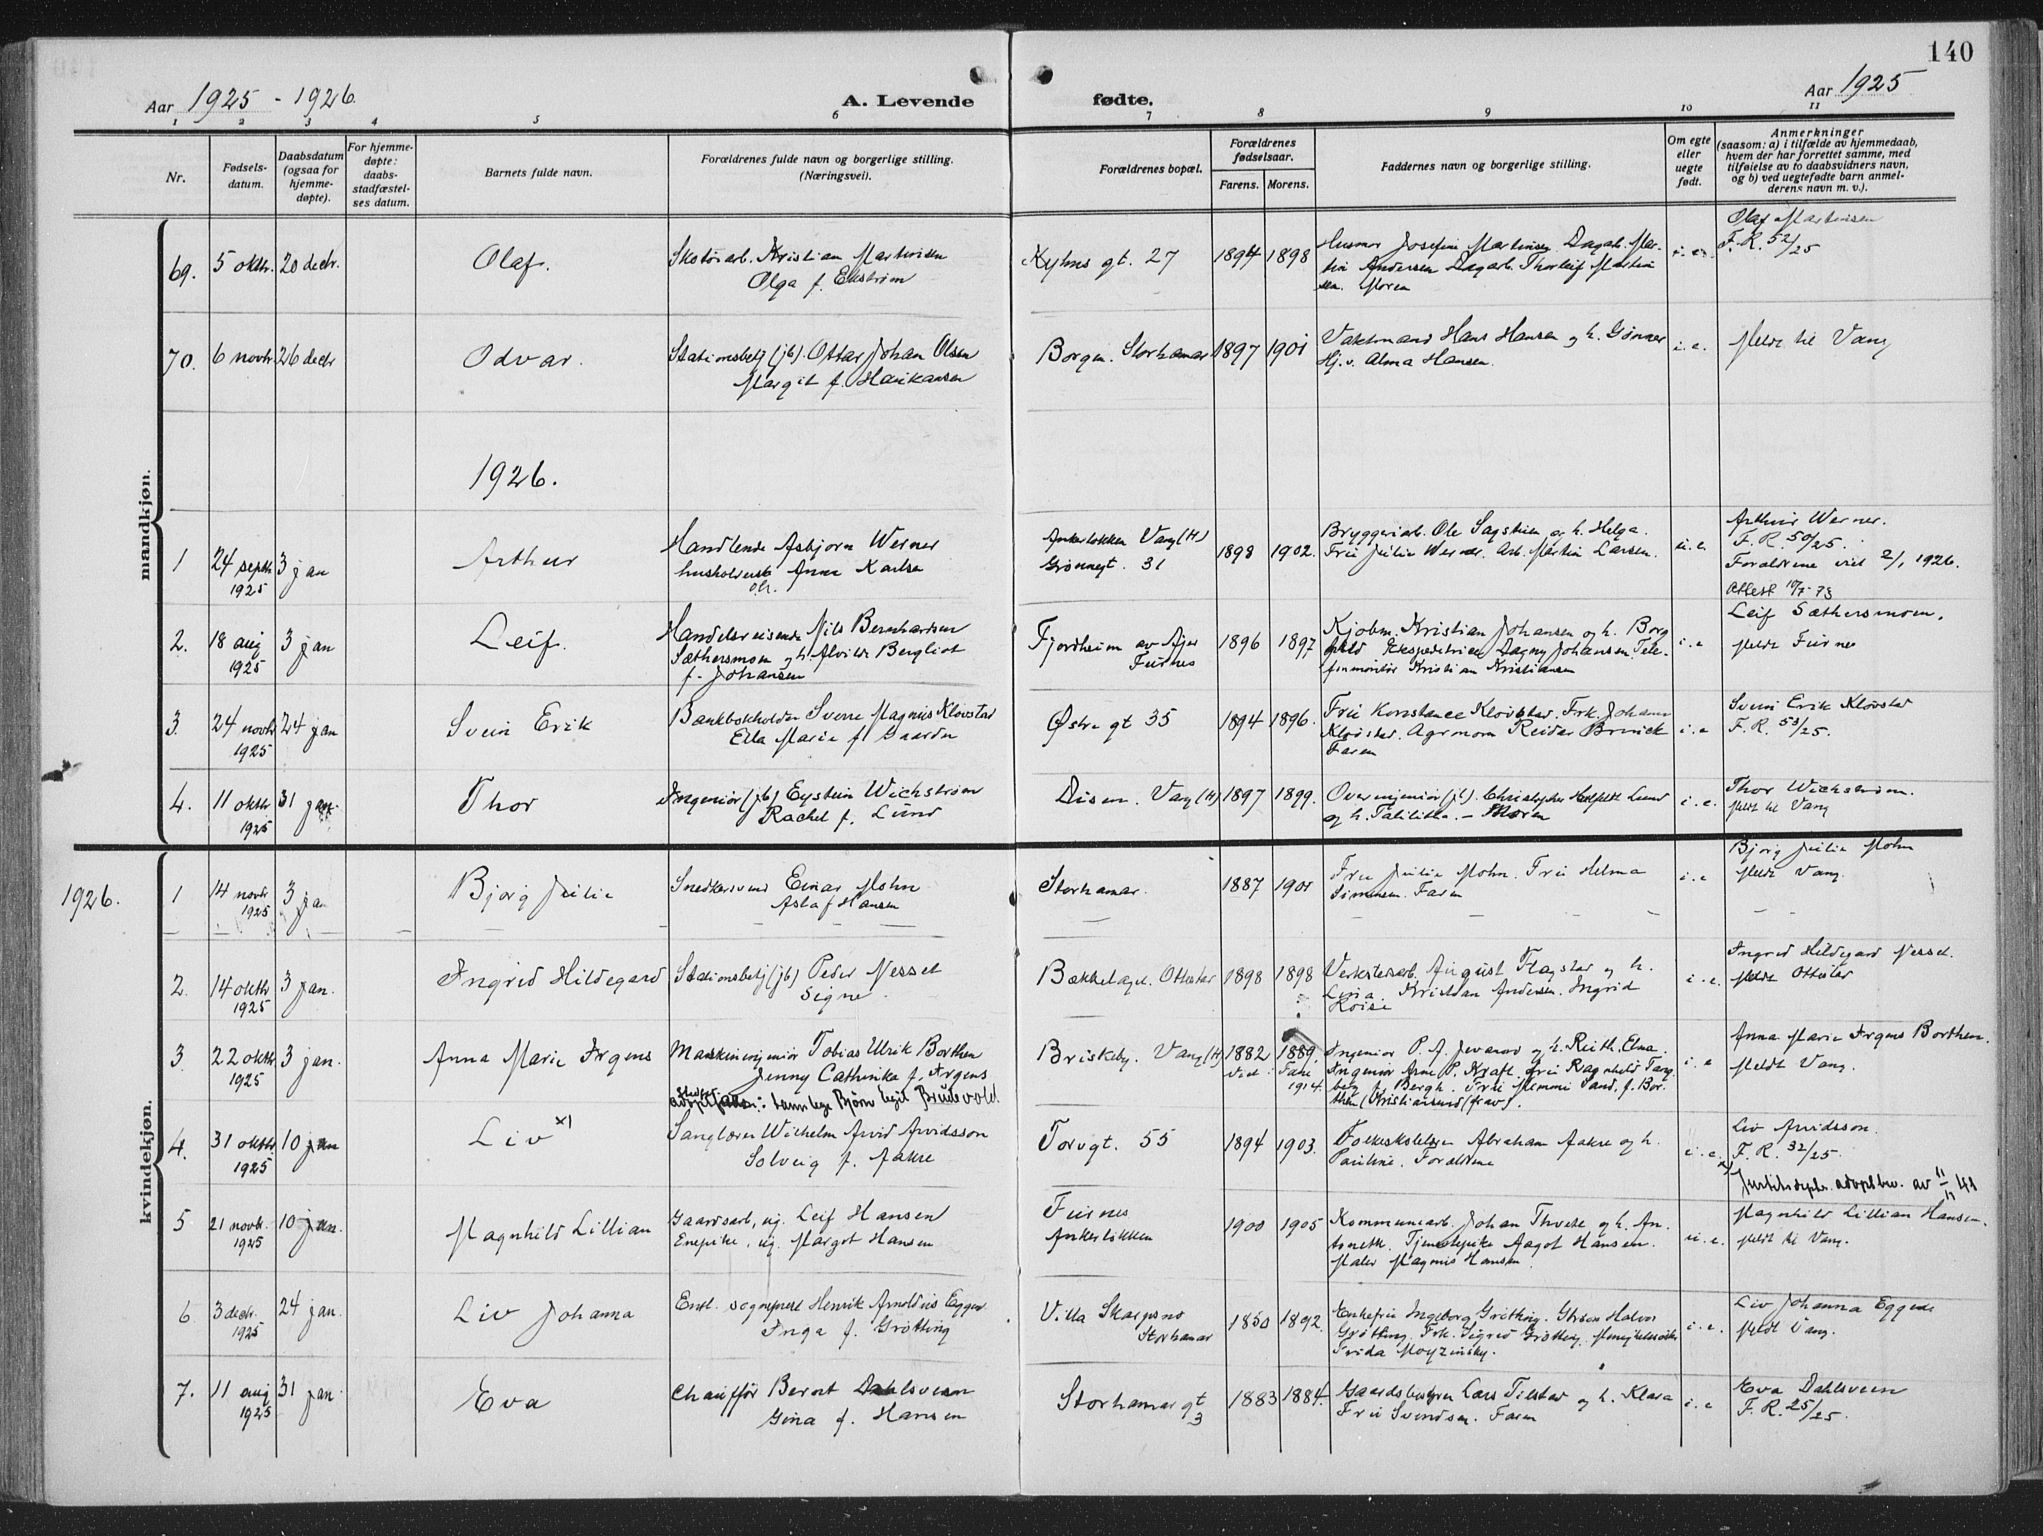 140
Aar 1925 - 1926.
A. Levende
fødte.
Aar 1925
1 2 3 4 5 6 7 8 9 10 11
Nr.
Fødsels-
datum.
Daabsdatum
(ogsaa for
hjemme-
døpte).
For hjemme-
døpte:
daabs-
stadfæstel-
ses datum.
Barnets fulde navn.
Forældrenes fulde navn og borgerlige stilling.
(Næringsvei).
Forældrenes bopæl.
Forældrenes
fødselsaar.
Farens. Morens.
Faddernes navn og borgerlige stilling.
Om egte
eller
uegte
født.
Anmerkninger
(saasom: a) i tilfælde av hjemmedaab,
hvem der har forrettet samme, med
tilføielse av to daabsvidners navn,
og b) ved uegtefødte barn anmel-
derens navn m. v.).
mandkjøn.
69. 5 oktbr. 20 decbr. Olaf.
Skotøiarb. Kristian Martinsen
Olga f. Ekstrøm
Kyhns gt. 27 1894 1898
Husmor Josefine Martinsen Dagarb. Mar-
tin Andersen Dagarb. Thorleif Martin
sen. Moren
i. e.
Olaf Martinsen
F. R. 52/25
70. 6 novbr. 26 decbr Odvar.
Stationsbetj (jb). Ottar Johan Olsen
Margit f. Haakansen
Borgen. Storhamar 1897 1901
Vaktmand Hans Hansen og h. Gønner
Hj. v. Alma Hansen.
i. e.
Meldt til Vang
1926.
1 24 septbr 1925 3 jan Arthur
Handlende Asbjørn Werner
husholderske Anna Karlsen
Ankerløkken Vang (H)
Grønnegt. 31
1898 1902.
Bryggeriarb. Ole Sagstuen og h. Helga.
Fru Julie Werner. Arb. Martin Larsen.
u. e.
Arthur Werner.
F. R. 50/25.
Forældrene viet 2/1 1926.
Attest 10/7-73
2. 18 aug 1925 3 jan Leif.
Handelsreisende Nils Bernhardsen
Sæthersmoen og h. Alvilde Bergliot
f. Johansen
Fjordheim av Ajer
Furnes
1896 1897
Kjøbm. Kristian Johansen og h. Borg
hild Ekspeditrice Dagny Johansen. Tele-
fonmontør Kristian Kristiansen
i. e
Leif Sæthersmoen.
Meldt Furnes
3. 24 novbr 1925 24 jan Svein Erik
Bankbokholder Sverre Magnus Kløvstad
Ella Marie f. Gaarder
Østre gt 35 1894 1896.
Fru Konstance Kløvstad. Frk. Johanne
Kløvstad. Agronom Reidar Brinick
Faren
i. e
Svein Erik Kløvstad
F. R. 53/25.
4. 11 oktbr 1925 31 jan. Thor
Ingeniør (jb) Eystein Wichstrøm
Rachel f. Lund
Disen. Vang (H) 1897 1899.
Overingeniør (jb). Christopher Lund
og h. Tabitha. - Moren
i. e.
Thor Wichstrøm.
Meldt til Vang
kvindekjøn.
1926. 1 14 novbr 1925 3 jan Bjørg Julie
Snedkersvend Einar Mohn
Asta f Hansen
Storhamar. 1887 1901
Fru Julie Mohn. Fru Helma
Simensen. Faren
i. e
Bjørg Julie Mohn
Meldt Vang.
2. 14 oktbr 1925 3 jan. Ingrid Hildegard
Stationsbetj (jb) Peder Nesset
Signe
Bækkelaget. Ottestad 1898 1898
Verkstedsarb. August Flagstad og h.
Lina. Kristian Andersen. Ingrid
i. e.
Ingrid Hildegard Nesset.
Meldt Ottestad
3. 22 oktbr. 1925 3 jan. Anna Marie Irgens
Maskiningeniør Tobias Ulrik Borthen
Jenny Cathinka f. Irgens
Briskeby. Vang (H) 1882 1889.
1914.
Ingeniør P. A. og h. Ruth, Elna.
Ingeniør Arne P. Kraft. Fru Ragnhild Tang
berg f. Bergh. Fru Memmi Sand, f. Bor-
then (Kristiansund (frav).
i. e
Anna Marie Irgens Borthen.
Meldt Vang.
adoptivfader: tannlege Bjørn Brudevold.
4. 31 oktbr 1925 10 jan Liv x)
Sanglærer Wilhelm Arvid Arvidsson
Solveig f. Aakre
Torvgt. 55 1894 1903.
Folkeskolelærer Abraham Aakre og h.
Pauline. Forældrene
i. e.
Liv Arvidsson.
F. R. 32/25.
x) Justitsdepts. adopt.bev. av 11/11 41
5 21 novbr. 1925 10 jan. Magnhild Lillian
Gaardsarb, ug. Leif Hansen
Enepike, ug. Margot Hansen
Furnes
Ankerløkken
1900 1905
Kommunearb. Johan Thvete og h. An-
tonette. Tjenestepike Aagot Hansen.
Maler Magnus Hansen.
u. e.
Magnhild Lillian Hansen.
Meldt til Vang.
6. 3 decbr. 1925 24 jan. Liv Johanna
Entl. sogneprest Henrik Arnoldus Eggen
Inga f. Grøtting
Villa Skaugsno
Storhamar
1850 1892.
Enkefru Ingeborg Grøtting. Halvor
Grøtting. Frk. Sigrid Grøtting, Menighetssøster
Frida Moyzinsky.
i. e.
Liv Johanna Eggen
Meldt Vang.
7. 11 aug 1925 31 jan. Eva
Chauffør Bernt Dahlsveen
Gina f. Hansen
Storhamar gt
3
1883 1884.
Gaardsbestyrer Lars Tilstad og h. Klara
Fru Svendsen. Faren
i. e
Eva Dahlsveen
F. R. 25/25.